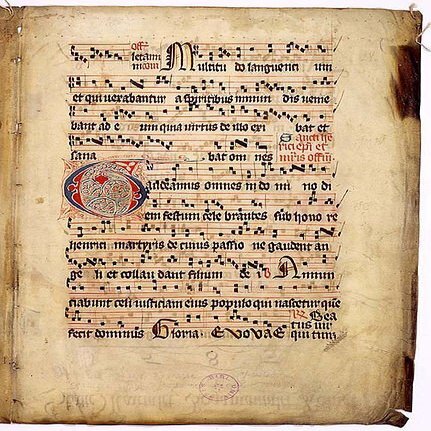 Multitu do languenti um
et qui vexabantur a spiritibus immun dis venie
bant ad e um quia virtus de illo exi bat et
sana bat om nes
Gaudeamus omnes in do mi no di
em festum cele brantes sub hono re
henrici martyris de cuius passio ne gaudent an
ge li et collau dant filium de i Annun
ciabunt celi iusticiam eius populo qui nascetur que
fecit dominus Gloria Evovae qui tim